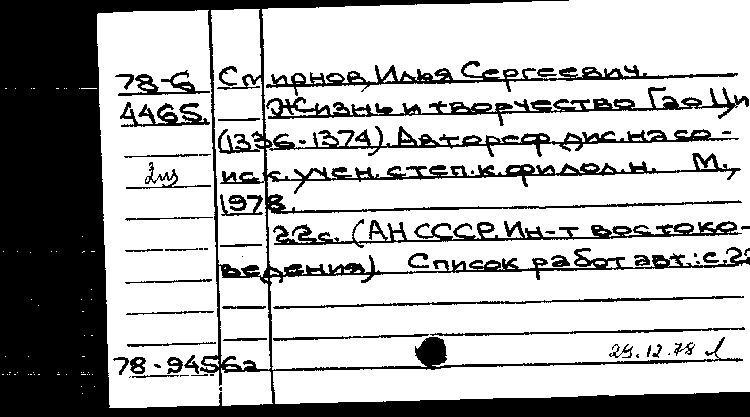 78-6 Смирнов, Илья Сергеевич.
4465. Жизнь и творчество Гао Ци
(1336-1374). Автореф. дис. на со-
2из иск. учен. степ. к. филол. н. М.,
1978.
22с. (АН СССР. Ин-т востоко-
ведения). Список работ авт.: с. 22
78-9456а 29.12.78 Л